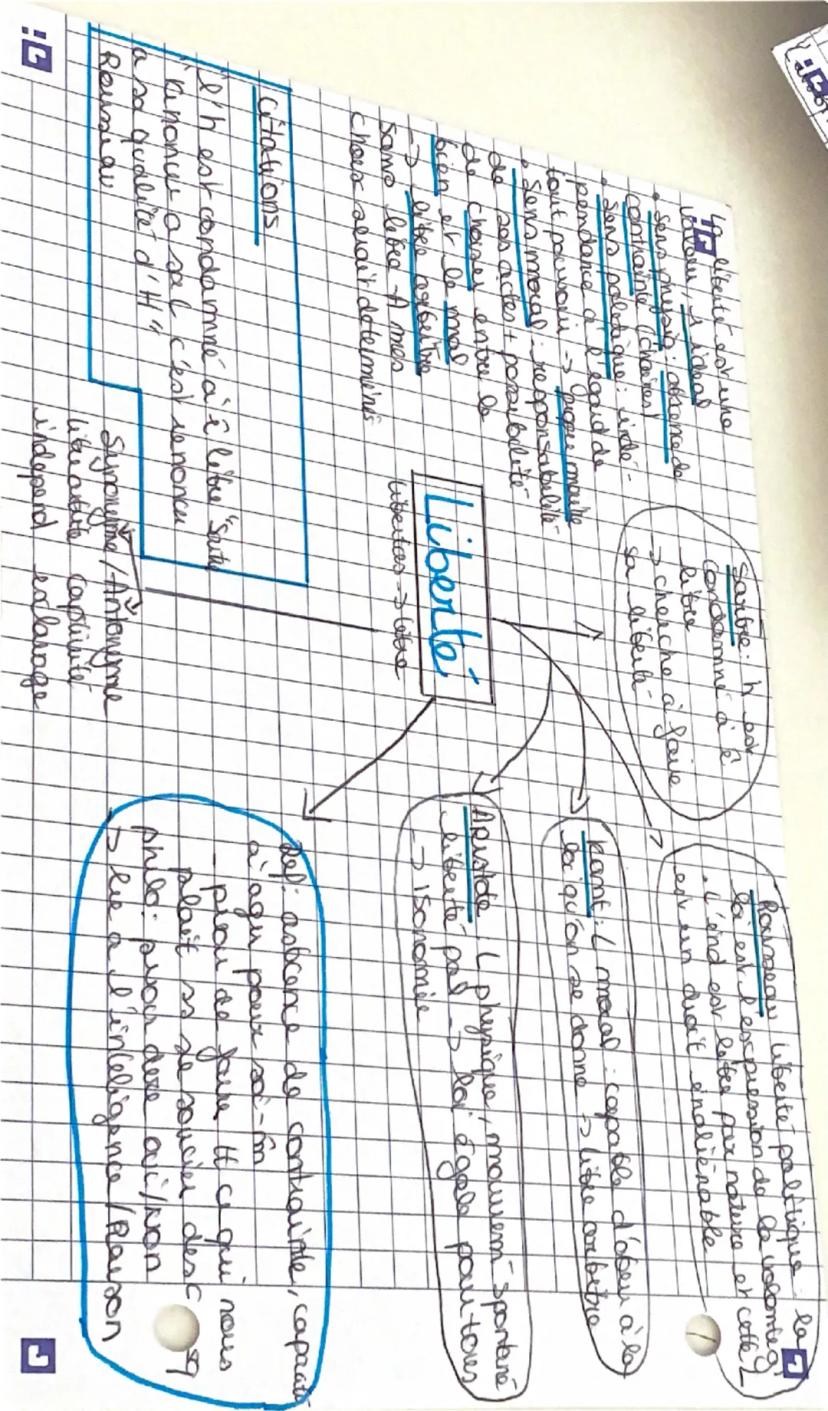 La liberté est une
valeur, 1 idéal
• sens physiq: absence de
contrainte (chaines)
• Sens politique: indé-
pendance à l'égard de
tout pouvoir ->
• Sens moral: responsabilité
de ses actes + possibilité
de choisir entre le
bien et le mal
-> libre arbitre
Sans libre A mes
choix serait déterminés
Citations
"l'h est condamné à ê libre" Sartre
"Renoncer à sa L c'est renoncer
a sa qualité d'H"
Rousseau
Liberté
libertas -> libre
Synonyme/Antonyme
libre arbitre captivité
independ esclavage
Sartre: h est
condamné à ê
libre
-> cherche à faire
sa liberté
Rousseau liberté politique: la
loi est l'expression de la volonté g
. L'ind est libre par nature et cette L
est un droit inaliénable
Kant: L moral: capable d'obéir à la
loi qu'on se donne -> libre arbitre
Aristote L physique, mouvem spontané
liberté pol -> loi égale pour tous
-> Isonomie
Def: absence de contrainte, capacité
à agir pour soi-m
- plan de faire tt ce qui nous
plait ss se soucier des C
philo: pvoir dire oui/non
-> liée à l'intelligence/Raison